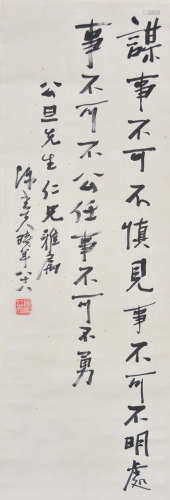 謀事不可不慎見事不可不明處
事不可不公任事不可不勇
公旦先生仁兄雅屬
陳立夫時年八十八